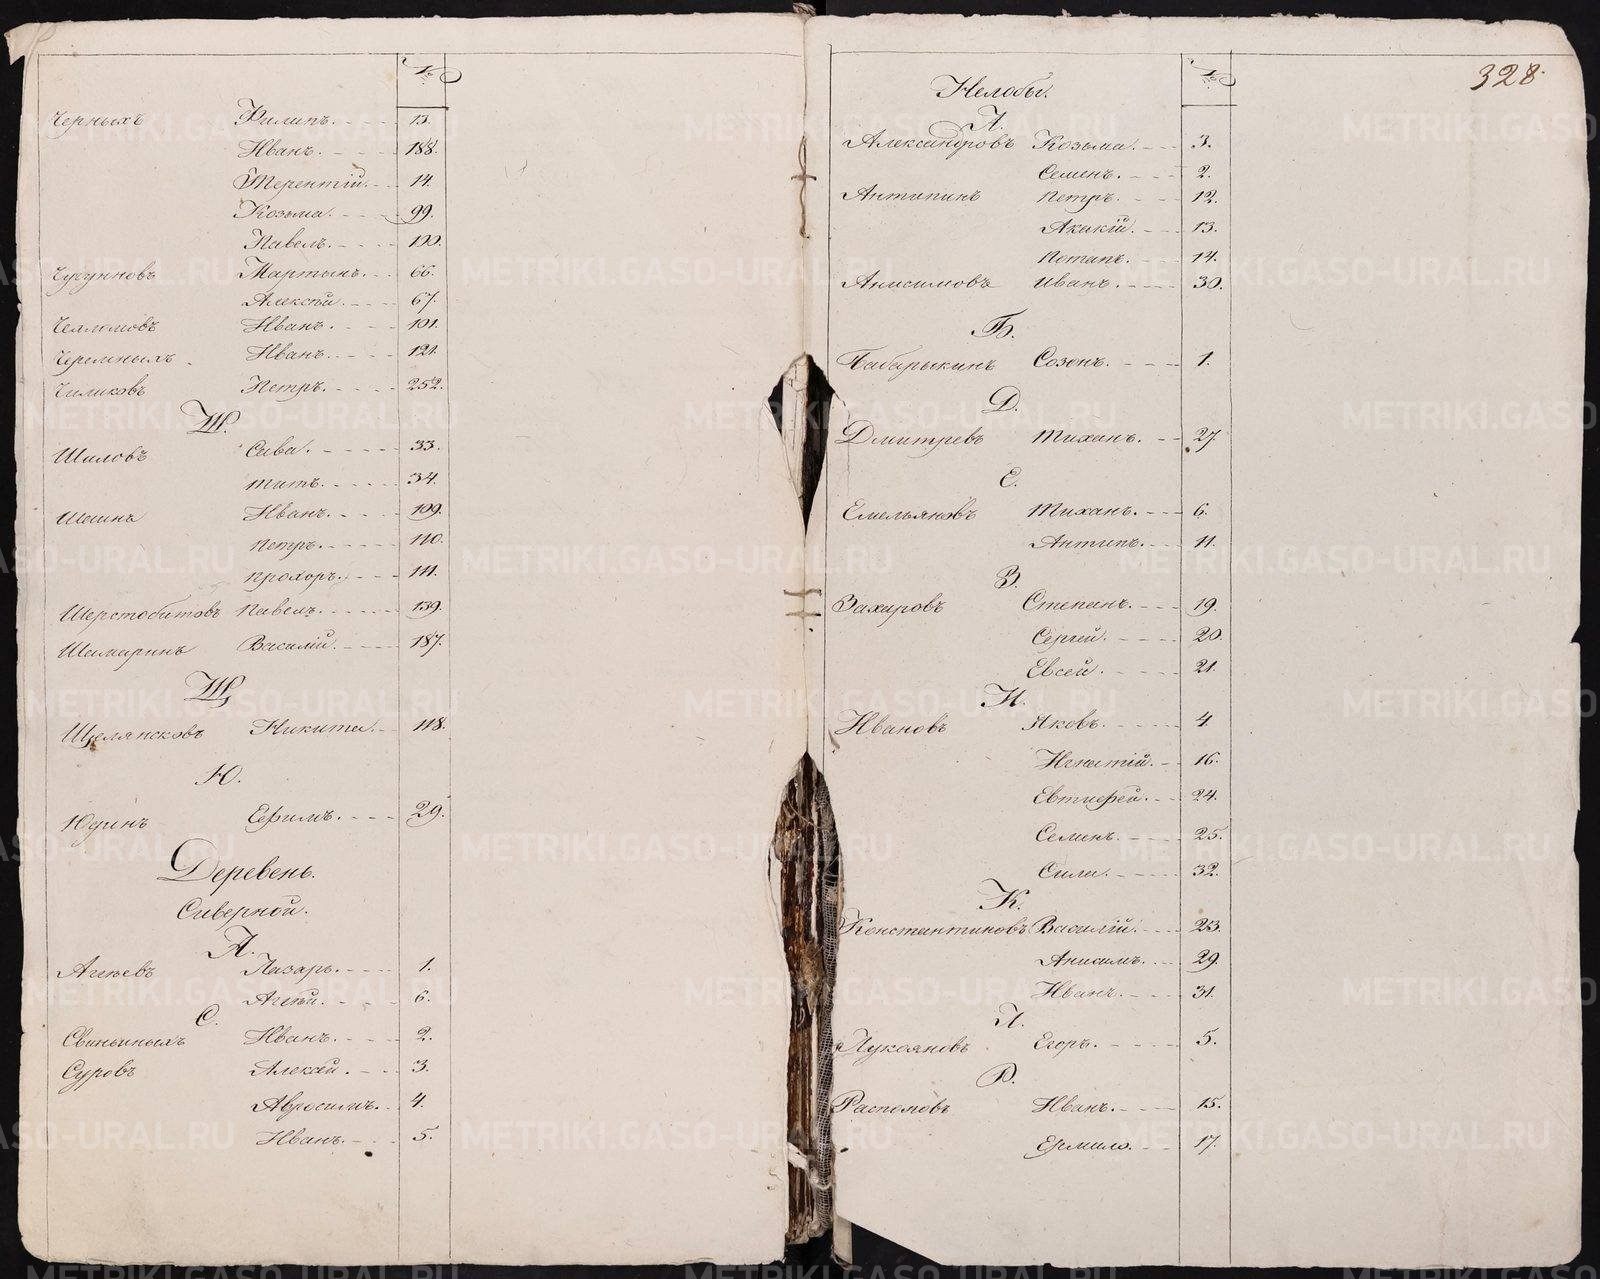 №
Черныхъ Филипъ. 13.
Иванъ. 188.
Терентій. 14.
Козьма. 99.
Павелъ. 100.
Чугуновъ Мартынъ. 66.
Алексѣй. 67.
Иванъ. 101.
Черемныхъ Иванъ. 121.
Чиликовъ Петръ. 252.
Ш.
Шиловъ Сава. 33.
Титъ. 34.
Шешнь Иванъ. 109.
Петръ. 110.
Прохоръ. 111.
Шерстобитовъ Павелъ. 139.
Шамаринъ Василій. 187.
Щ
Щелянсковъ Никита. 118.
Ю.
Юдинъ Ефимъ. 29.
Деревень.
Сиверной.
А.
Агеѣвъ Лазарь. 1.
Агѣй. 6.
С.
Свиньиныхъ Иванъ. 2.
Суровъ Алексѣй. 3.
Авросимъ. 4.
Иванъ. 5.
328.
№
Нелобы.
А.
Александровъ Козьма. 3.
Семенъ. 2.
Антипинъ Петръ. 12.
Акакій. 13.
Потапъ. 14.
Анисимовъ Иванъ. 30.
Б.
Бабарыкинъ Созонъ. 1.
Д.
Дмитревъ Михаилъ. 27
Е.
Емельяновъ Михаилъ. 6.
Антипъ. 11.
З.
Захаровъ Степанъ. 19.
Сергей. 20.
Евсей. 21.
И.
Ивановъ Яковъ. 4.
Игнатій. 16.
Евтифей. 24.
Семенъ. 25.
Сила. 32.
К.
Константиновъ Василій. 23.
Анисимъ. 29.
Иванъ. 31.
Л.
Лукояновъ Егоръ. 5.
Р.
Распоповъ Иванъ. 15.
Ермило. 17.
METRIKI.GASO-URAL.RU